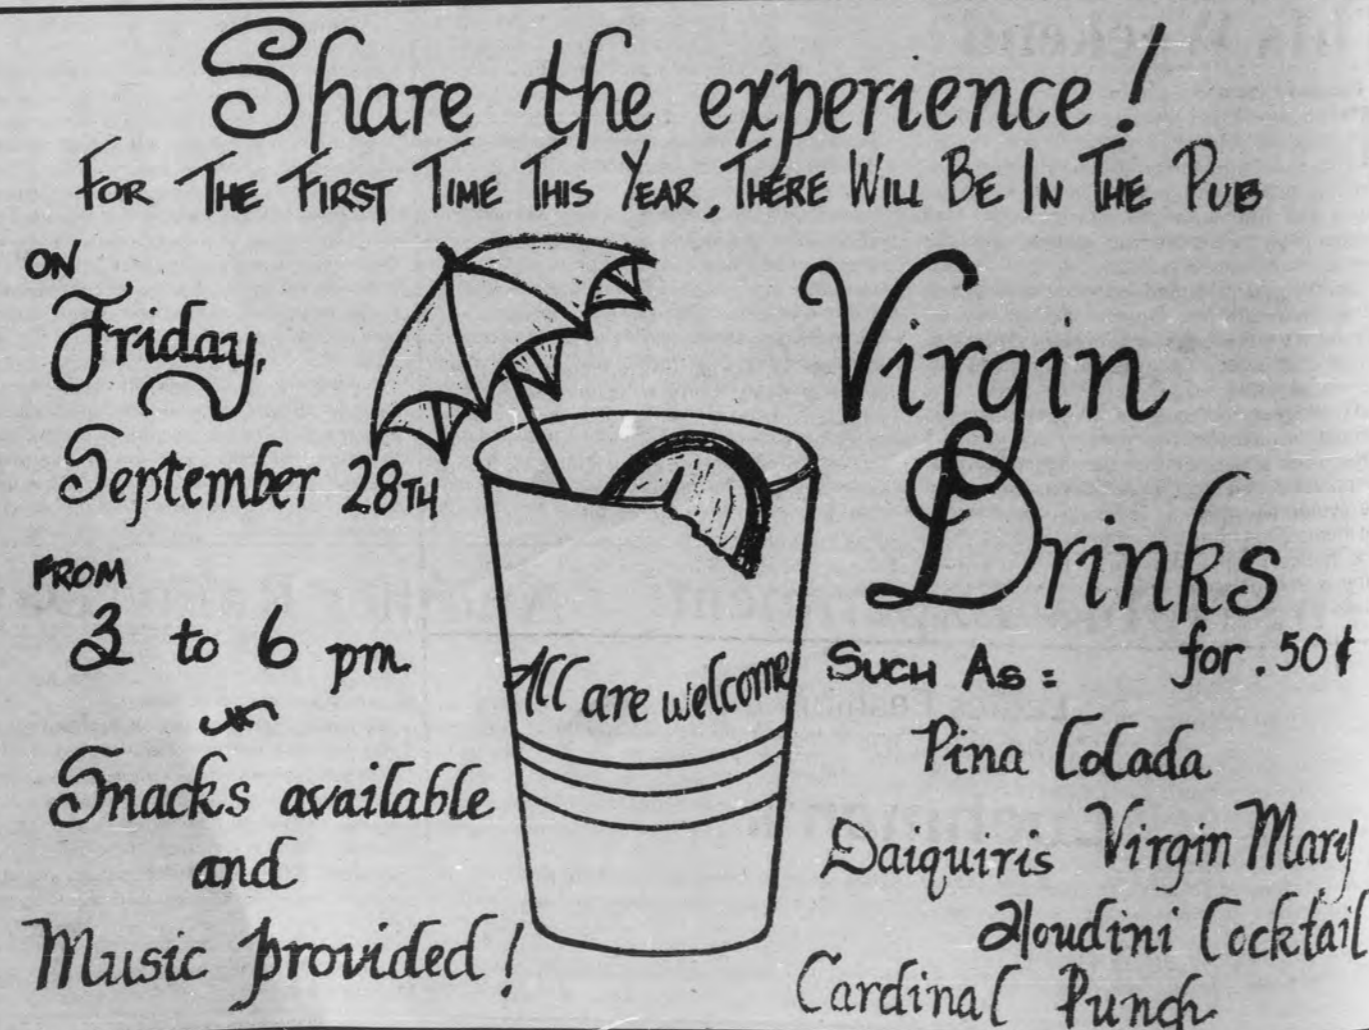 Share the experience!
FOR THE FIRST TIME THIS YEAR, THERE WILL BE IN THE PUB
ON
Friday,
September 28TH
FROM
3 to 6 pm.
Snacks available
and
Music provided!
All are welcome
Virgin
Drinks
for .50¢
SUCH AS:
Pina Colada
Daiquiris Virgin Mary
Houdini Cocktail
Cardinal Punch